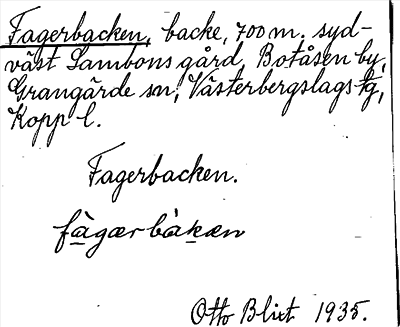 Fagerbacken, backe, 700 m. syd-
väst Lambons gård, Botåsen by,
Grangärde sn, Västerbergslags tg,
Kopp. l.
Fagerbacken.
fàgærbàkæn
Otto Blixt 1935.